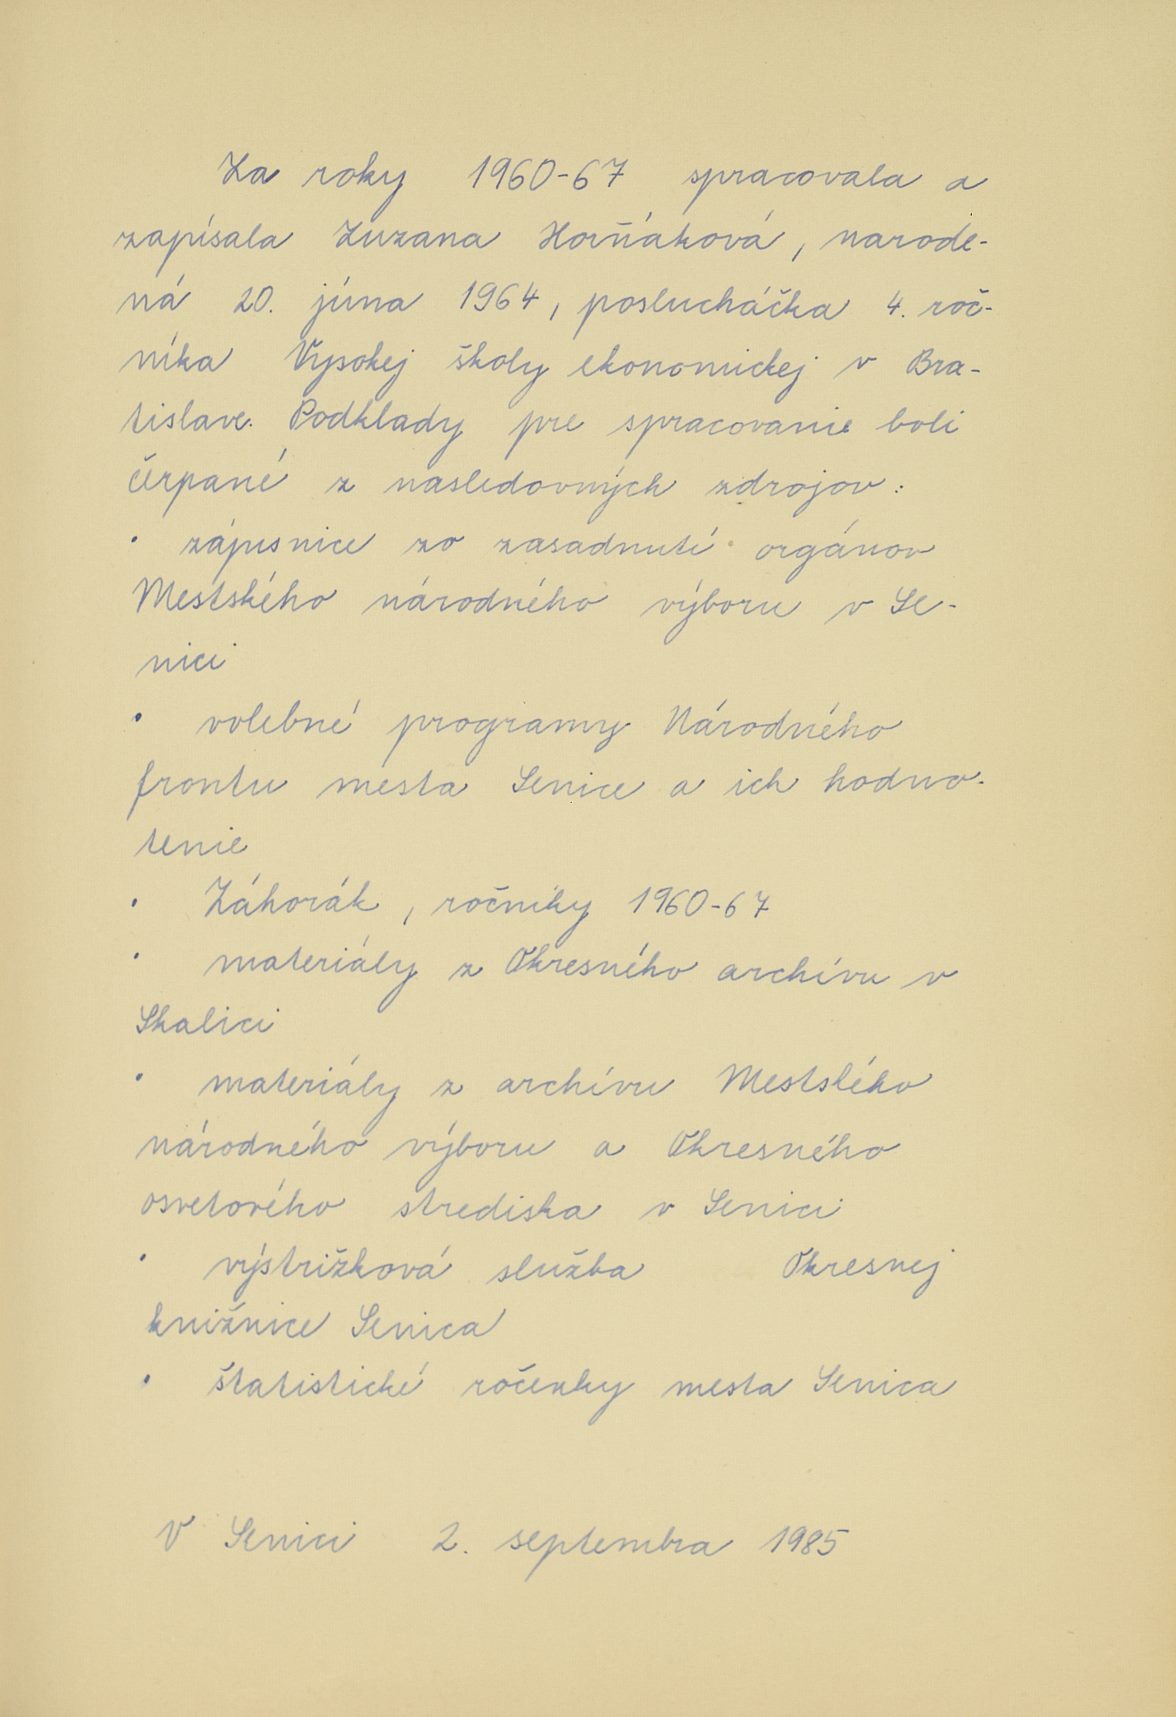 Za roky 1960-67 spracovala a
zapísala Zuzana Horňáková, narode-
ná 20. júna 1964, poslucháčka 4. roč-
níka Vysokej školy ekonomickej v Bra-
tislave. Podklady pre spracovanie boli
čerpané z nasledovných zdrojov:
• zápisnice zo zasadnutí orgánov
Mestského národného výboru v Se-
nici
• volebné programy Národného
frontu mesta Senice a ich hodno-
tenie
• Záhorák, ročníky 1960-67
• materiály z Okresného archívu v
Skalici
• materiály z archívu Mestského
národného výboru a Okresného
osvetového strediska v Senici
• výstrižková služba Okresnej
knižnice Senica
• štatistické ročenky mesta Senica
V Senici 2. septembra 1985